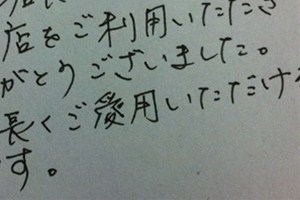 店をご利用いただき
がとうございました。
長くご愛用いただける
す。